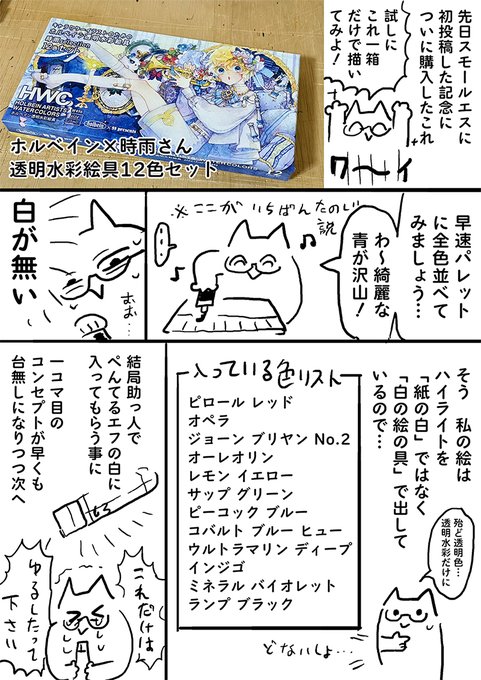 先日スモールエスに
初投稿した記念に
ついに購入したこれ
試しに
これ一箱
だけで描い
てみよ！
ワ〜イ
12色セット
HWC
HOLBEIN ARTISTS'
WATERCOLORS
ホルベイン×時雨さん
透明水彩絵具12色セット
早速パレット
に全色並べて
みましょう…
わ〜綺麗な
青が沢山！
※ここがいちばんたのしい
説
…
白が無い
そう　私の絵は
ハイライトを
「紙の白」ではなく
「白の絵の具」で出して
いるので…
殆ど透明色…
透明水彩だけに
どないしょ…
入っている色リスト
ピロール レッド
オペラ
ジョーン ブリヤン No.2
オーレオリン
レモン イエロー
サップ グリーン
ピーコック ブルー
コバルト ブルー ヒュー
ウルトラマリン ディープ
インジゴ
ミネラル バイオレット
ランプ ブラック
結局助っ人で
ぺんてるエフの白に
入ってもらう事に
一コマ目の
コンセプトが早くも
台無しになりつつ次へ
これだけは
ゆるしたって
下さい